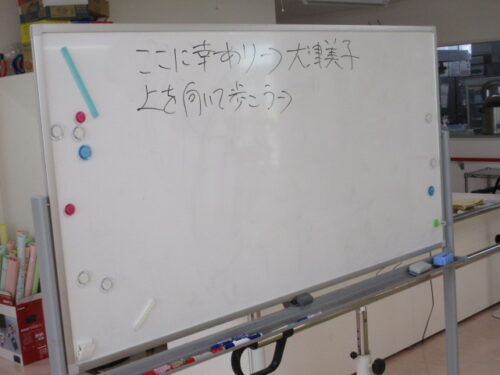 ここに幸あり→大津美子
上を向いて歩こう→